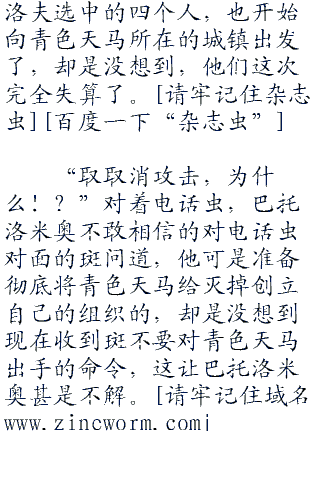 洛夫选中的四个人，也开始
向青色天马所在的城镇出发
了，却是没想到，他们这次
完全失算了。[请牢记住杂志
虫][百度一下“杂志虫”]
“取取消攻击，为什
么！？”对着电话虫，巴托
洛米奥不敢相信的对电话虫
对面的斑问道，他可是准备
彻底将青色天马给灭掉创立
自己的组织的，却是没想到
现在收到斑不要对青色天马
出手的命令，这让巴托洛米
奥甚是不解。[请牢记住域名
www.zincworm.com]